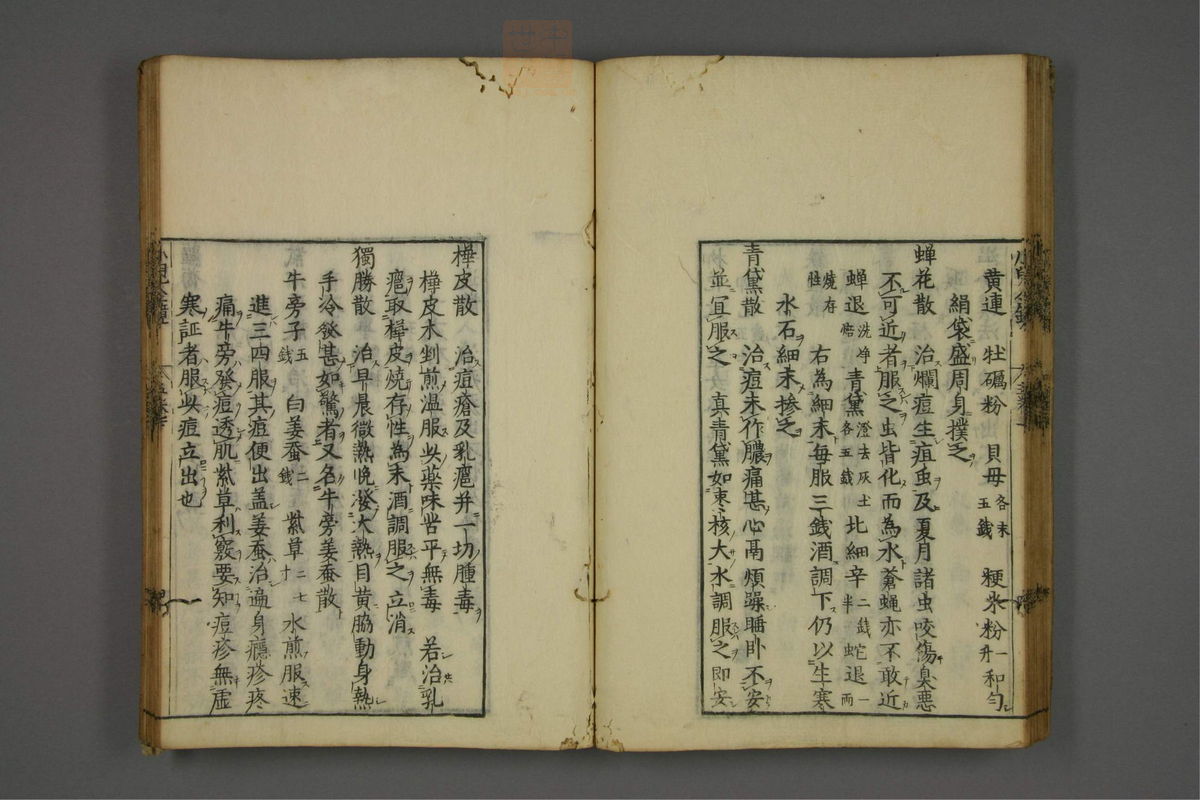 黄連 牡礪粉 貝母各末五銭 粳米粉一升和勻
絹袋盛周身撲之
蝉花散 治爛痘生疽虫及夏月諸虫咬傷臭惡
不可近者服之虫皆化而為水蒼蝿亦不敢近
蝉退洗净焙 青黛澄去灰土各五銭 比細辛二銭半 蛇退一両
燒存性 右為細末毎服三銭酒調下仍以生寒
水石細末摻之
青黛散 治痘未作膿痛甚心鬲煩躁睡卧不安
並宜服之 真青黛如枣核大水調服之即安
樺皮散 治痘瘡及乳𤷍并一切腫毒
樺皮木剉煎温服此藥味苦平無毒 若治乳
𤷍取樺皮燒存性為末酒調服之立消
獨勝散 治早晨微熱晩發大熱目黄脇動身熱
手冷發甚如驚者又名牛旁姜蚕散
牛旁子五銭 白姜蚕二銭 紫草二七寸 水煎服速
進三四服其痘便出盖姜蚕治遍身癮疹疼
痛牛旁發痘透肌紫草利竅要知痘疹無虚
寒証者服此痘立出也